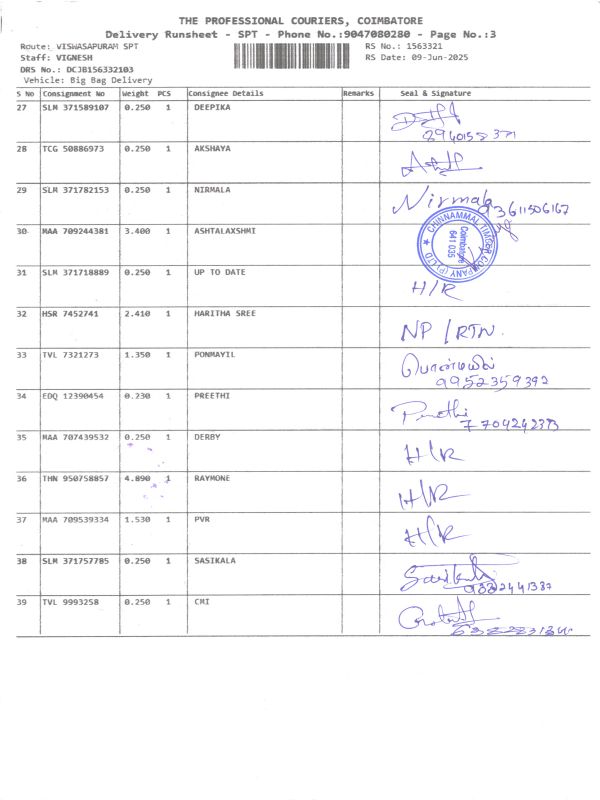 THE PROFESSIONAL COURIERS, COIMBATORE
Delivery Runsheet - SPT - Phone No.:9047080280 - Page No.:3
Route: VISWASAPURAM SPT RS No.: 1563321
Staff: VIGNESH RS Date: 09-Jun-2025
DRS No.: DCJB156332103
Vehicle: Big Bag Delivery
S No Consignment No Weight PCS Consignee Details Remarks Seal & Signature
27 SLM 371589107 0.250 1 DEEPIKA
28 TCG 50886973 0.250 1 AKSHAYA
29 SLM 371782153 0.250 1 NIRMALA Nirmala
93611506167
30 MAA 709244381 3.400 1 ASHTALAXSHMI
CHINNAMMAL TIMBER COMPANY (P) LTD
Coimbatore
641 035
31 SLM 371718889 0.250 1 UP TO DATE H/R
32 HSR 7452741 2.410 1 HARITHA SREE NP / RTN.
33 TVL 7321273 1.350 1 PONMAYIL பொன்மயில்
9952359392
34 EDQ 12390454 0.230 1 PREETHI Preethi
7704242373
35 MAA 707439532 0.250 1 DERBY H/R
36 THN 950758857 4.890 1 RAYMONE H/R
37 MAA 709539334 1.530 1 PVR H/R
38 SLM 371757785 0.250 1 SASIKALA Sasikala
39 TVL 9993258 0.250 1 CMI